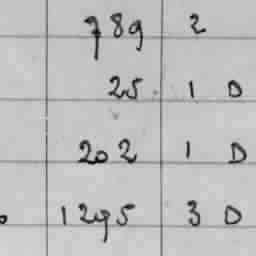 789 2
25. 1 D
202 1 D
1295 3 D